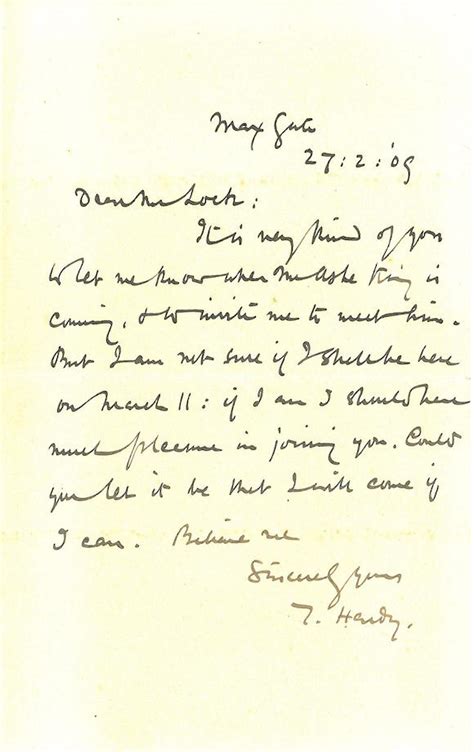 Max Gate
27:2:09
Dear Mr Lock:
It is very kind of you
to let me know when Mr Ashe King is
coming, & to invite me to meet him.
But I am not sure if I shall be here
on March 11: if I am I should have
much pleasure in joining you. Could
you let it be that I will come if
I can. Believe me
Sincerely yours
T. Hardy.